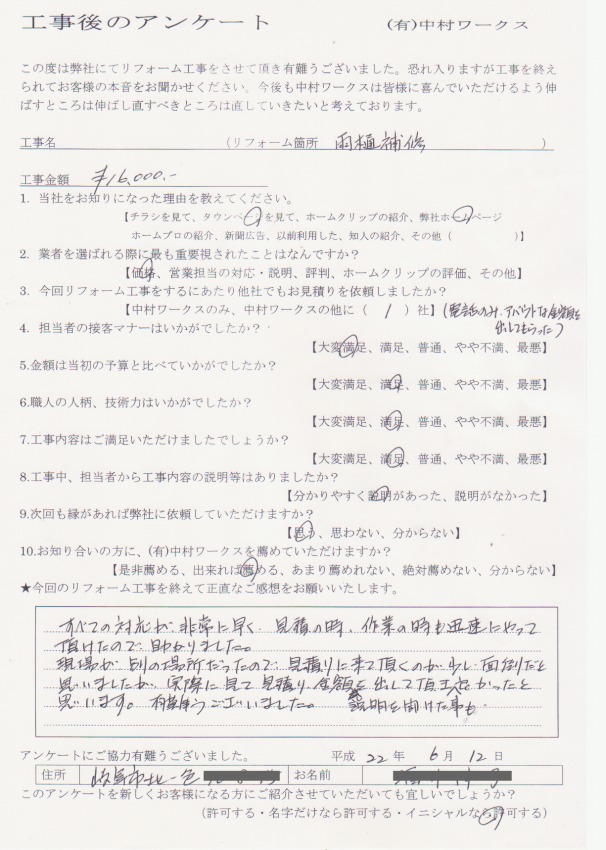 工事後のアンケート (有)中村ワークス
この度は弊社にてリフォーム工事をさせて頂き有難うございました。恐れ入りますが工事を終え
られてお客様の本音をお聞かせください。今後も中村ワークスは皆様に喜んでいただけるよう伸
ばすところは伸ばし直すべきところは直していきたいと考えております。
工事名 (リフォーム箇所 雨樋補修 )
工事金額 ¥16,000.-
1. 当社をお知りになった理由を教えてください。
【チラシを見て、タウンページを見て、ホームクリップの紹介、弊社ホームページ
ホームプロの紹介、新聞広告、以前利用した、知人の紹介、その他（ )】
2. 業者を選ばれる際に最も重要視されたことはなんですか？
【価格、営業担当の対応・説明、評判、ホームクリップの評価、その他】
3. 今回リフォーム工事をするにあたり他社でもお見積りを依頼しましたか？
【中村ワークスのみ、中村ワークスの他に（ 1 ）社】(電話のみ、アバウトな金額を
出してもらった)
4. 担当者の接客マナーはいかがでしたか？
【大変満足、満足、普通、やや不満、最悪】
5.金額は当初の予算と比べていかがでしたか？
【大変満足、満足、普通、やや不満、最悪】
6.職人の人柄、技術力はいかがでしたか？
【大変満足、満足、普通、やや不満、最悪】
7.工事内容はご満足いただけましたでしょうか？
【大変満足、満足、普通、やや不満、最悪】
8.工事中、担当者から工事内容の説明等はありましたか？
【分かりやすく説明があった、説明がなかった】
9.次回も縁があれば弊社に依頼していただけますか？
【思う、思わない、分からない】
10.お知り合いの方に、(有)中村ワークスを薦めていただけますか？
【是非薦める、出来れば薦める、あまり薦めれない、絶対薦めない、分からない】
★今回のリフォーム工事を終えて正直なご感想をお願いいたします。
すべての対応が非常に早く、見積の時、作業の時も迅速にやって
頂けたので、助かりました。
現場が別の場所だったので、見積りに来て頂くのが少し面倒だと
思いましたが、実際に見て見積り、金額を出して頂き、よかったと
思います。有難うございました。 説明を聞けた事も
アンケートにご協力有難うございました。 平成 22 年 6 月 12 日
住所 岐阜市北一色 お名前
このアンケートを新しくお客様になる方にご紹介させていただいても宜しいでしょうか？
（許可する・名字だけなら許可する・イニシャルなら許可する）